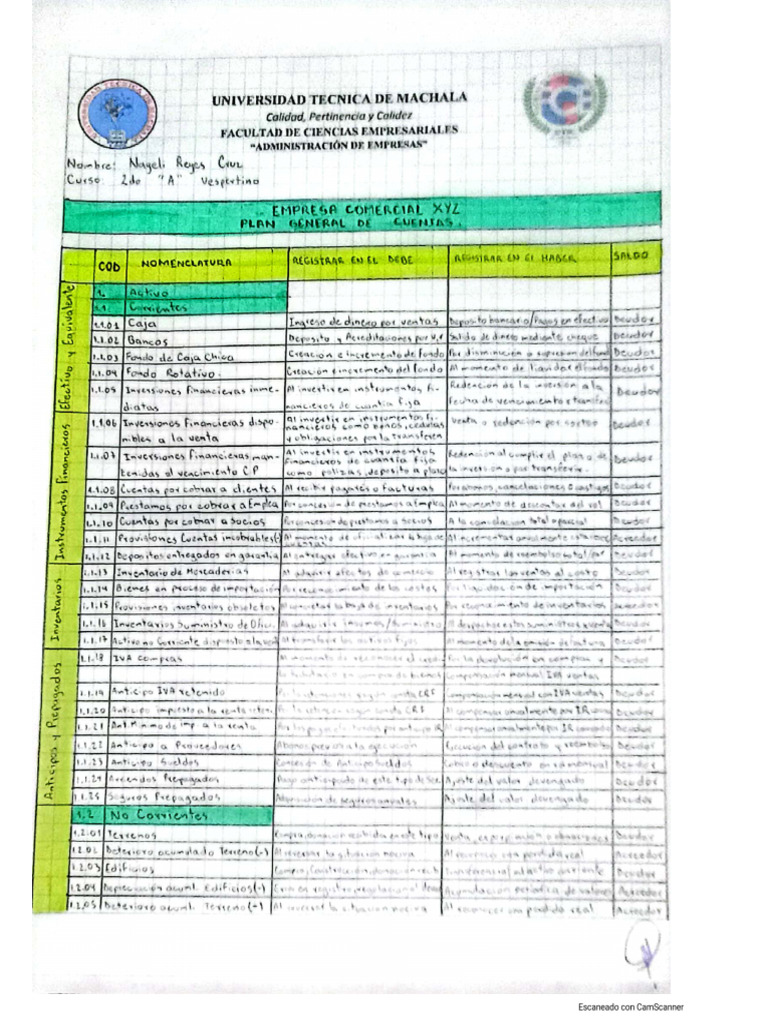 UNIVERSIDAD TECNICA DE MACHALA
Calidad, Pertinencia y Calidez
FACULTAD DE CIENCIAS EMPRESARIALES
"ADMINISTRACIÓN DE EMPRESAS"
Nombre: Nayeli Reyes Cruz
Curso: 2do "A" Vespertino
EMPRESA COMERCIAL XYZ
PLAN GENERAL DE CUENTAS.
COD NOMENCLATURA REGISTRAR EN EL DEBE REGISTRAR EN EL HABER SALDO
Efectivo y Equivalente
1. Activo
1.1. Corrientes
1.1.01 Caja Ingreso de dinero por ventas Deposito bancario/Pagos en efectivo Deudor
1.1.02 Bancos Deposito y Acreditaciones por Salido de dinero mediante cheque Deudor
1.1.03 Fondo de Caja Chica Creacion e incremento de fondo Por disminución o supresion del fondo Deudor
1.1.04 Fondo Rotativo. Creación e incremento del fondo Al momento de liquidar el fondo Deudor
1.1.05 Inversiones financieras inme- Al invertir en instrumentos fi- Redención de la inversión a la Deudor
diatas nancieros de cuantía fija fecha de vencimiento
Instrumentos Financieros
1.1.06 Inversiones Financieras dispo- Al invertir en instrumentos fi- Venta o redención por Deudor
nibles a la venta nancieros como bonos, cedulas
y obligaciones por la
1.1.07 Inversiones Financieras man- Al invertir en instrumentos Redención al cumplir el plazo de Deudor
tenidas al vencimiento C.P financieros de cuantía fija la inversion o por
como polizas, deposito a plazo
1.1.08 Cuentas por cobrar a clientes Al recibir pagarés o facturas Por abonos, cancelaciones o castigos Deudor
1.1.09 Prestamos por cobrar a Emplea Por concesion de prestamos a Emplea Al momento de descontar del rol Deudor
1.1.10 Cuentas por cobrar a Socios Por concesion de prestamos a Socios A la cancelacion total o parcial Deudor
1.1.11 Provisiones Cuentas incobrables(-) Al momento de Al incrementar anualmente Acreedor
1.1.12 Depositos entregados en garantia Al entregar efectivo en garantia Al momento de reembolso total/par Deudor
Inventarios
1.1.13 Inventario de Mercaderias Al adquirir Al registrar las ventas al costo Deudor
1.1.14 Bienes en proceso de importación Por reconocimiento de los costos Por liquidación de importación Deudor
1.1.15 Provisiones inventarios obsoletos Al concretar la baja de inventarios Por reconocimiento de inventarios Acreedor
1.1.16 Inventarios Suministro de Ofic. Al adquirir insumos/Suministro Deudor
1.1.17 Activo no Corriente Al transferir los activos fijos Al momento de la emisión de factura Deudor
Anticipos y Prepagados
1.1.18 IVA compras Al momento de reconocer el Por la devolución en compras y Deudor
Compensación mensual IVA ventas
1.1.19 Anticipo IVA retenido Compensacion mensual con IVA ventas Deudor
1.1.20 Anticipo impuesto a la renta Al compensar anualmente por I.R Deudor
1.1.21 Ant. Minimo de imp a la renta Al compensar anualmente por IR Deudor
1.1.22 Anticipo a Proveedores Abonos previo a la ejecución Ejecucion del contrato y reembolso Deudor
1.1.23 Anticipo Sueldos Concesión de Anticipo Sueldos Cobro o descuento en rol mensual Deudor
1.1.24 Arriendos Prepagados Pago anticipado de este tipo de Ajuste del valor devengado Deudor
1.1.25 Seguros Prepagados Adquisicion de seguros anuales Ajuste del valor devengado Deudor
1.2 No Corrientes
1.2.01 Terrenos Compra, donación recibida en este tipo Venta, expropiación o donaciones Deudor
1.2.02 Deterioro acumulado Terreno(-) Al reversar la situación nociva Al reconocer una perdida real Acreedor
1.2.03 Edificios Compra, Construcción, donación Deudor
1.2.04 Depreciación acuml. Edificios(-) Acumulacion periodica de valores Acreedor
1.2.05 Deterioro acuml. Terreno(-) Al reversar la situacion nociva Al reconocer una perdida real Acreedor
Escaneado con CamScanner